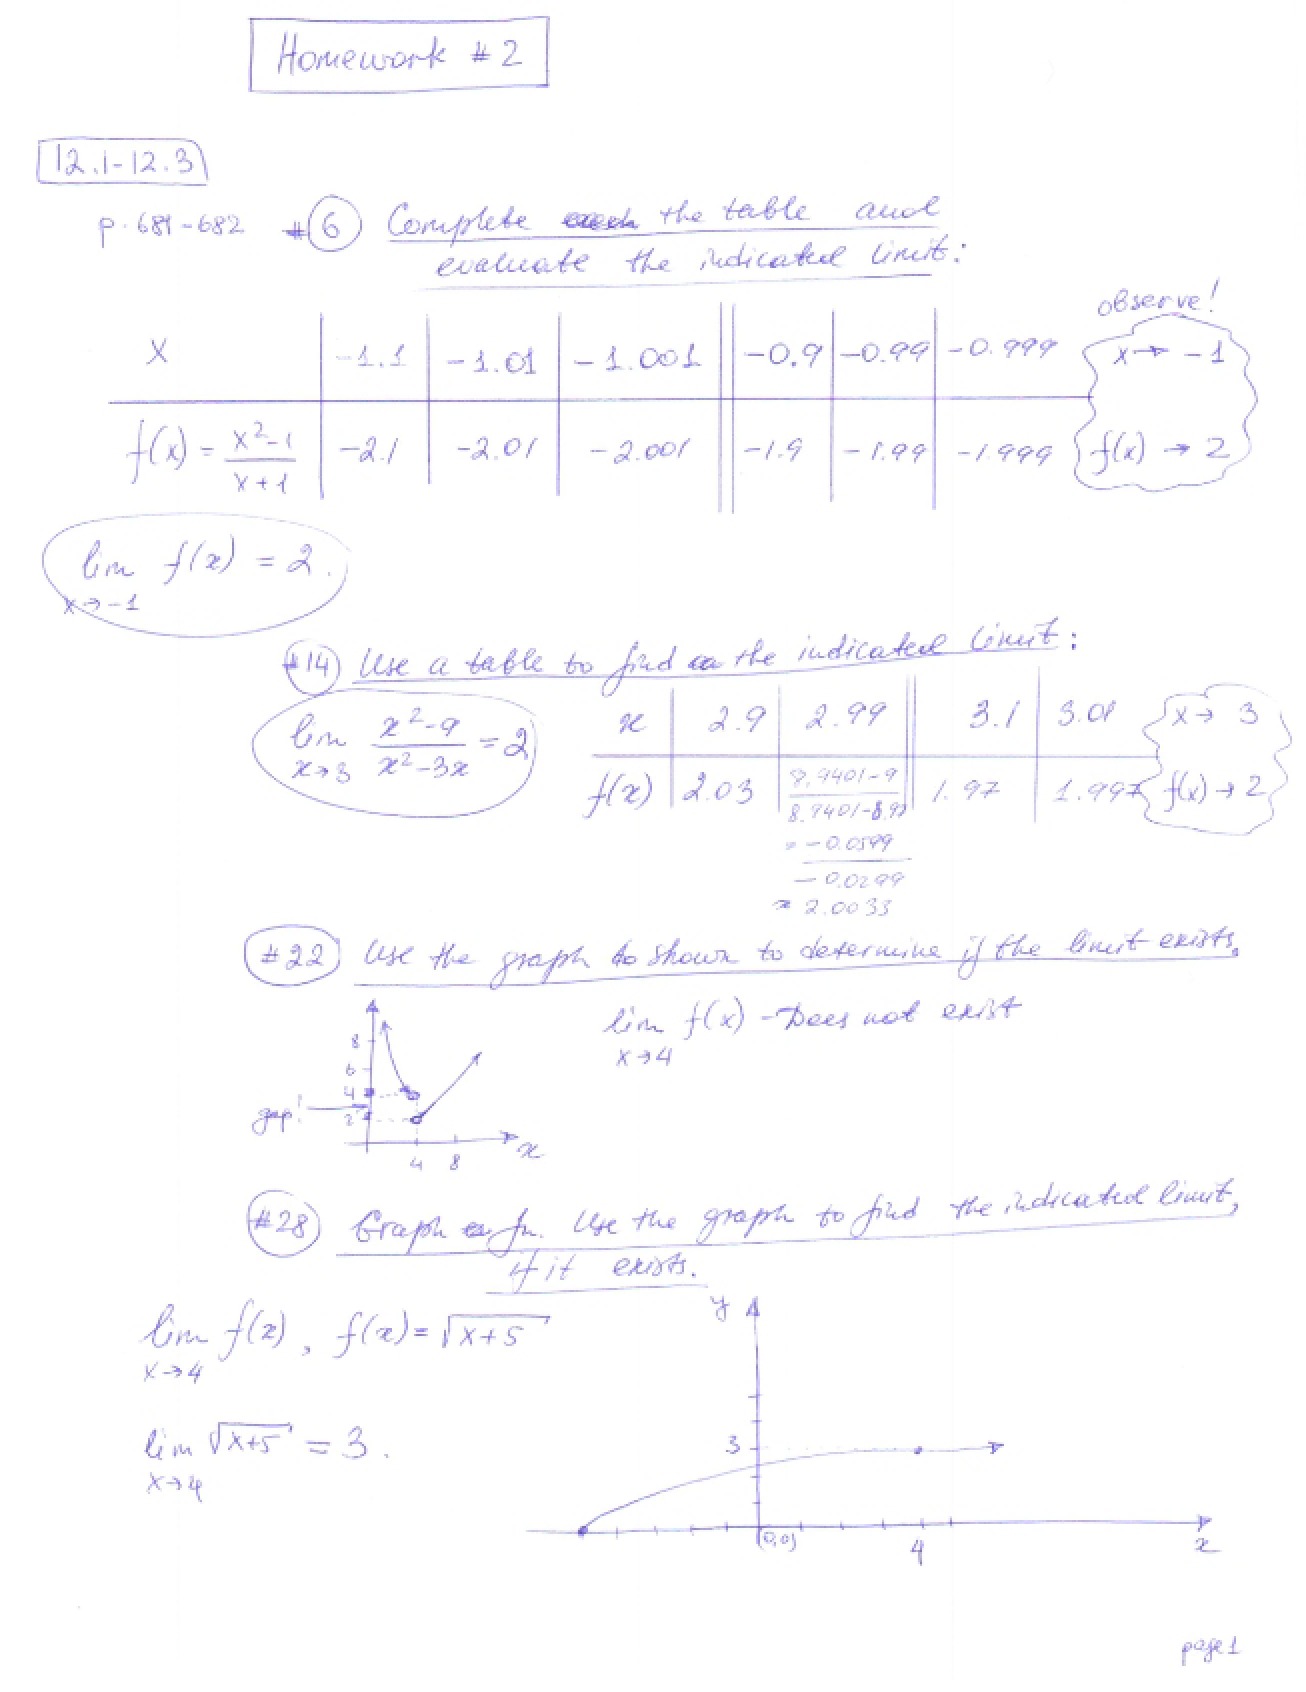 Homework # 2
12.1-12.3
p. 681-682 #6 Complete the table and
evaluate the indicated limit:
observe!
x -1.1 -1.01 -1.001 -0.9 -0.99 -0.999 x → -1
f(x) = (x²-1)/(x+1) -2.1 -2.01 -2.001 -1.9 -1.99 -1.999 f(x) → 2
lim f(x) = 2.
x→-1
#14 Use a table to find the indicated limit:
lim (x²-9)/(x²-3x) = 2
x→3
x 2.9 2.99 3.1 3.01 x → 3
f(x) 2.03 (8.9401-9)/(8.9401-8.97) 1.97 1.997 f(x) → 2
= -0.0599
-0.0299
≈ 2.0033
#22 Use the graph to shown to determine if the limit exists.
lim f(x) - Does not exist
x→4
8
6
4
gap!
2
x
4 8
#28 Graph a fn. Use the graph to find the indicated limit,
if it exists.
y
lim f(x), f(x) = √(x+5)
x→4
lim √(x+5) = 3.
x→4
3
(0,0) 4 x
page 1